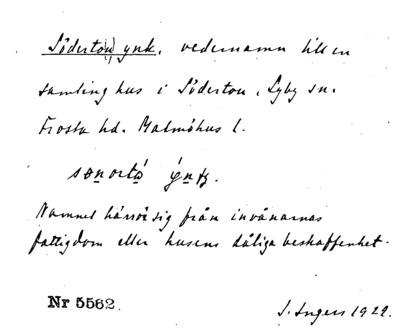 Södertou ynk. vedernamn till en
samling hus i Södertou, Lyby sn.
Frosta hd. Malmöhus l.
Namnet härrör sig från invånarnas
fattigdom eller husens dåliga beskaffenhet.
Nr 5562.
I. Ingers 1922.